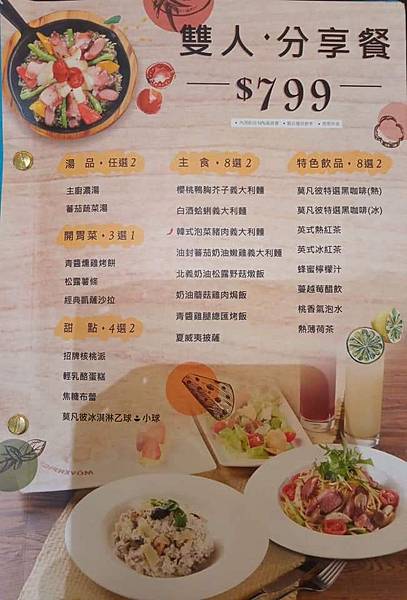 雙人·分享餐
$799
湯品·任選2
主廚濃湯
蕃茄蔬菜湯
開胃菜·3選1
青醬燻雞烤餅
松露薯條
經典凱薩沙拉
甜點·4選2
招牌核桃派
輕乳酪蛋糕
焦糖布蕾
莫凡彼冰淇淋乙球 小球
主食·8選2
櫻桃鴨胸芥子義大利麵
白酒蛤蜊義大利麵
韓式泡菜豬肉義大利麵
油封蕃茄奶油嫩雞義大利麵
北義奶油松露野菇燉飯
奶油蘑菇雞肉焗飯
青醬雞腿總匯烤飯
夏威夷披薩
特色飲品·8選2
莫凡彼特選黑咖啡(熱)
莫凡彼特選黑咖啡(冰)
英式熱紅茶
英式冰紅茶
蜂蜜檸檬汁
蔓越莓醋飲
桃香氣泡水
熱薄荷茶